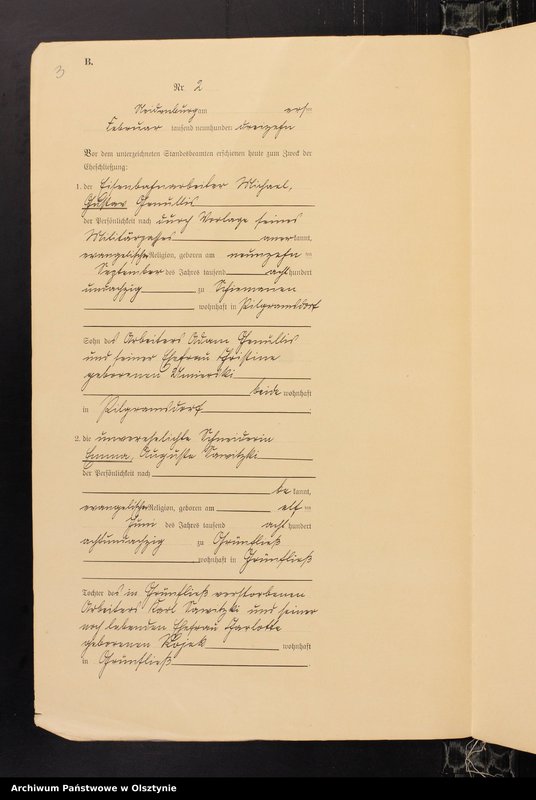 3
B.
Nr. 2
Neidenburg am ersten
Februar tausend neunhundert dreizehn
Vor dem unterzeichneten Standesbeamten erschienen heute zum Zweck der
Eheschließung:
1. der Eisenbahnarbeiter Michael,
Gustav
der Persönlichkeit nach durch Vorlage seines
Militärpasses anerkannt,
evangelischer Religion, geboren am neunzehnten
September des Jahres tausend achthundert
undachzig zu Schiemanen
wohnhaft in Pilgramsdorf
Sohn des Arbeiters Adam
und seiner Ehefrau Christine
geborenen
beide wohnhaft
in Pilgramsdorf
2. die unverehelichte Schneiderin
Emma, Auguste Sawitzki
der Persönlichkeit nach
be kannt,
evangelischer Religion, geboren am elften
Juni des Jahres tausend achthundert
achtundachzig zu Grünfließ
wohnhaft in Grünfließ
Tochter des in Grünfließ verstorbenen
Arbeiters Karl Sawitzki und seiner
noch lebenden Ehefrau Charlotte
geborenen Kojek wohnhaft
in Grünfließ
Archiwum Państwowe w Olsztynie